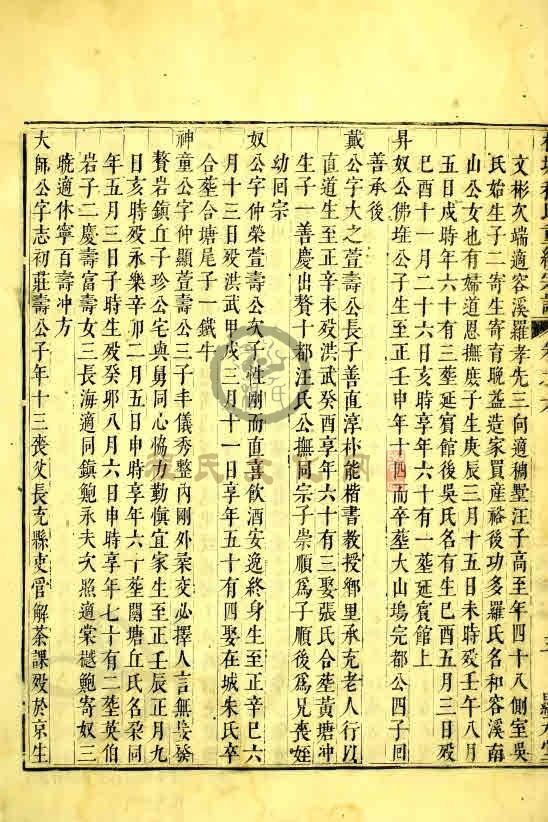 文彬次端適容溪羅孝先三向適稠墅汪子高至年四十八側室吳
氏始生子二寄生寄育晚益造家買産裕後功多羅氏名和容溪南
山公女也有婦道恩撫庶子生庚辰三月十五日未時殁壬年八月
五日戌時年六十有三塟延賓館後吳氏名有生己酉五月三日殁
巳酉十一月二十六日亥時享年六十有一塟延賓館上
昇奴公佛𡉏公子生至正壬申年十四而卒塟大山塢完都公四子回
善承後
戴公字大之萱壽公長子善直淳朴能楷書教授鄉里承充老人行以
直道生至正辛未殁洪武癸酉享年六十有三娶張氏合塟黃塘冲
生子一善慶出贅十都汪氏公撫同宗子崇順爲子順後爲兄喪姪
幼囘宗
奴公字仲榮萱壽公次子性剛而直喜飲酒安逸終身生至正辛巳六
月十三日殁洪武甲戌三月十一日享年五十有四娶在城朱氏卒
合塟合塘尾子一鐵牛
神童公字仲顯萱壽公三子丰儀秀整內剛外柔交必擇人言無妄發
贅岩鎮丘子珍公宅與舅同心恊力勤慎宜家生至正壬辰正月九
日亥時殁永樂辛卯二月五日申時享年六十塟閣塘丘氏名柰同
年五月三日子時生殁癸卯八月六日申時享年七十有二塟英伯
岩子二慶壽富壽女三長海適同鎮鮑永夫次照適棠樾鮑寄奴三
曉適休寧百壽冲方
大師公字志初莊壽公子年十三喪父長充縣吏管解茶課殁於京生